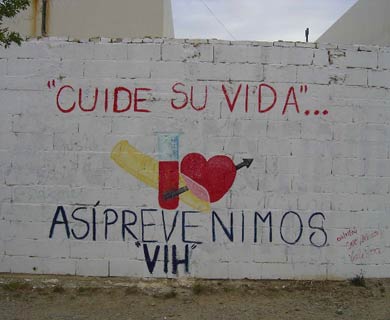 "CUIDE SU VIDA"...
ASÍ PREVENIMOS
"VIH"